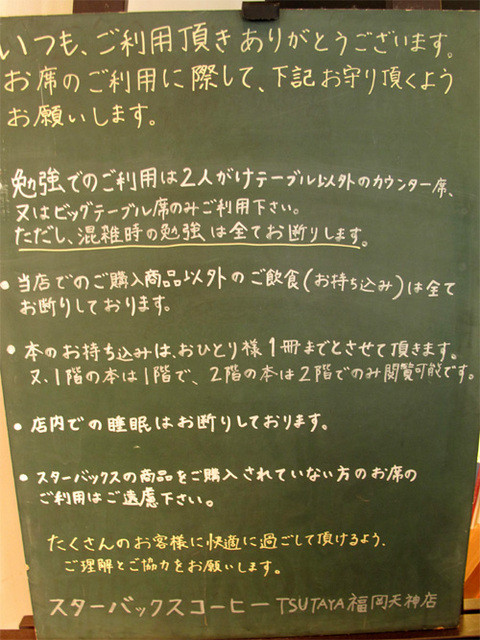 いつも、ご利用頂きありがとうございます。
お席のご利用に際して、下記お守り頂くよう
お願いします。
勉強でのご利用は2人がけテーブル以外のカウンター席、
又はビッグテーブル席のみご利用下さい。
ただし、混雑時の勉強は全てお断りします。
• 当店でのご購入商品以外のご飲食(お持ち込み)は全て
お断りしております。
• 本のお持ち込みは、おひとり様1冊までとさせて頂きます。
又、1階の本は1階で、2階の本は2階でのみ閲覧可能です。
• 店内での睡眠はお断りしております。
• スターバックスの商品をご購入されていない方のお席の
ご利用はご遠慮下さい。
たくさんのお客様に快適に過ごして頂けるよう、
ご理解とご協力をお願いします。
スターバックスコーヒー TSUTAYA福岡天神店